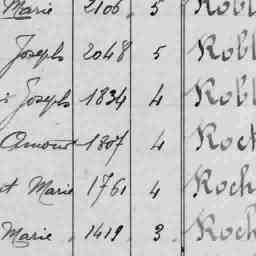 Marie 2106. 5 Robl
Joseph 2048 5 Robl
Joseph 1834 4 Robl
1807 4 Roch
t Marie 1761 4 Roch
Marie. 1419. 3. Roch